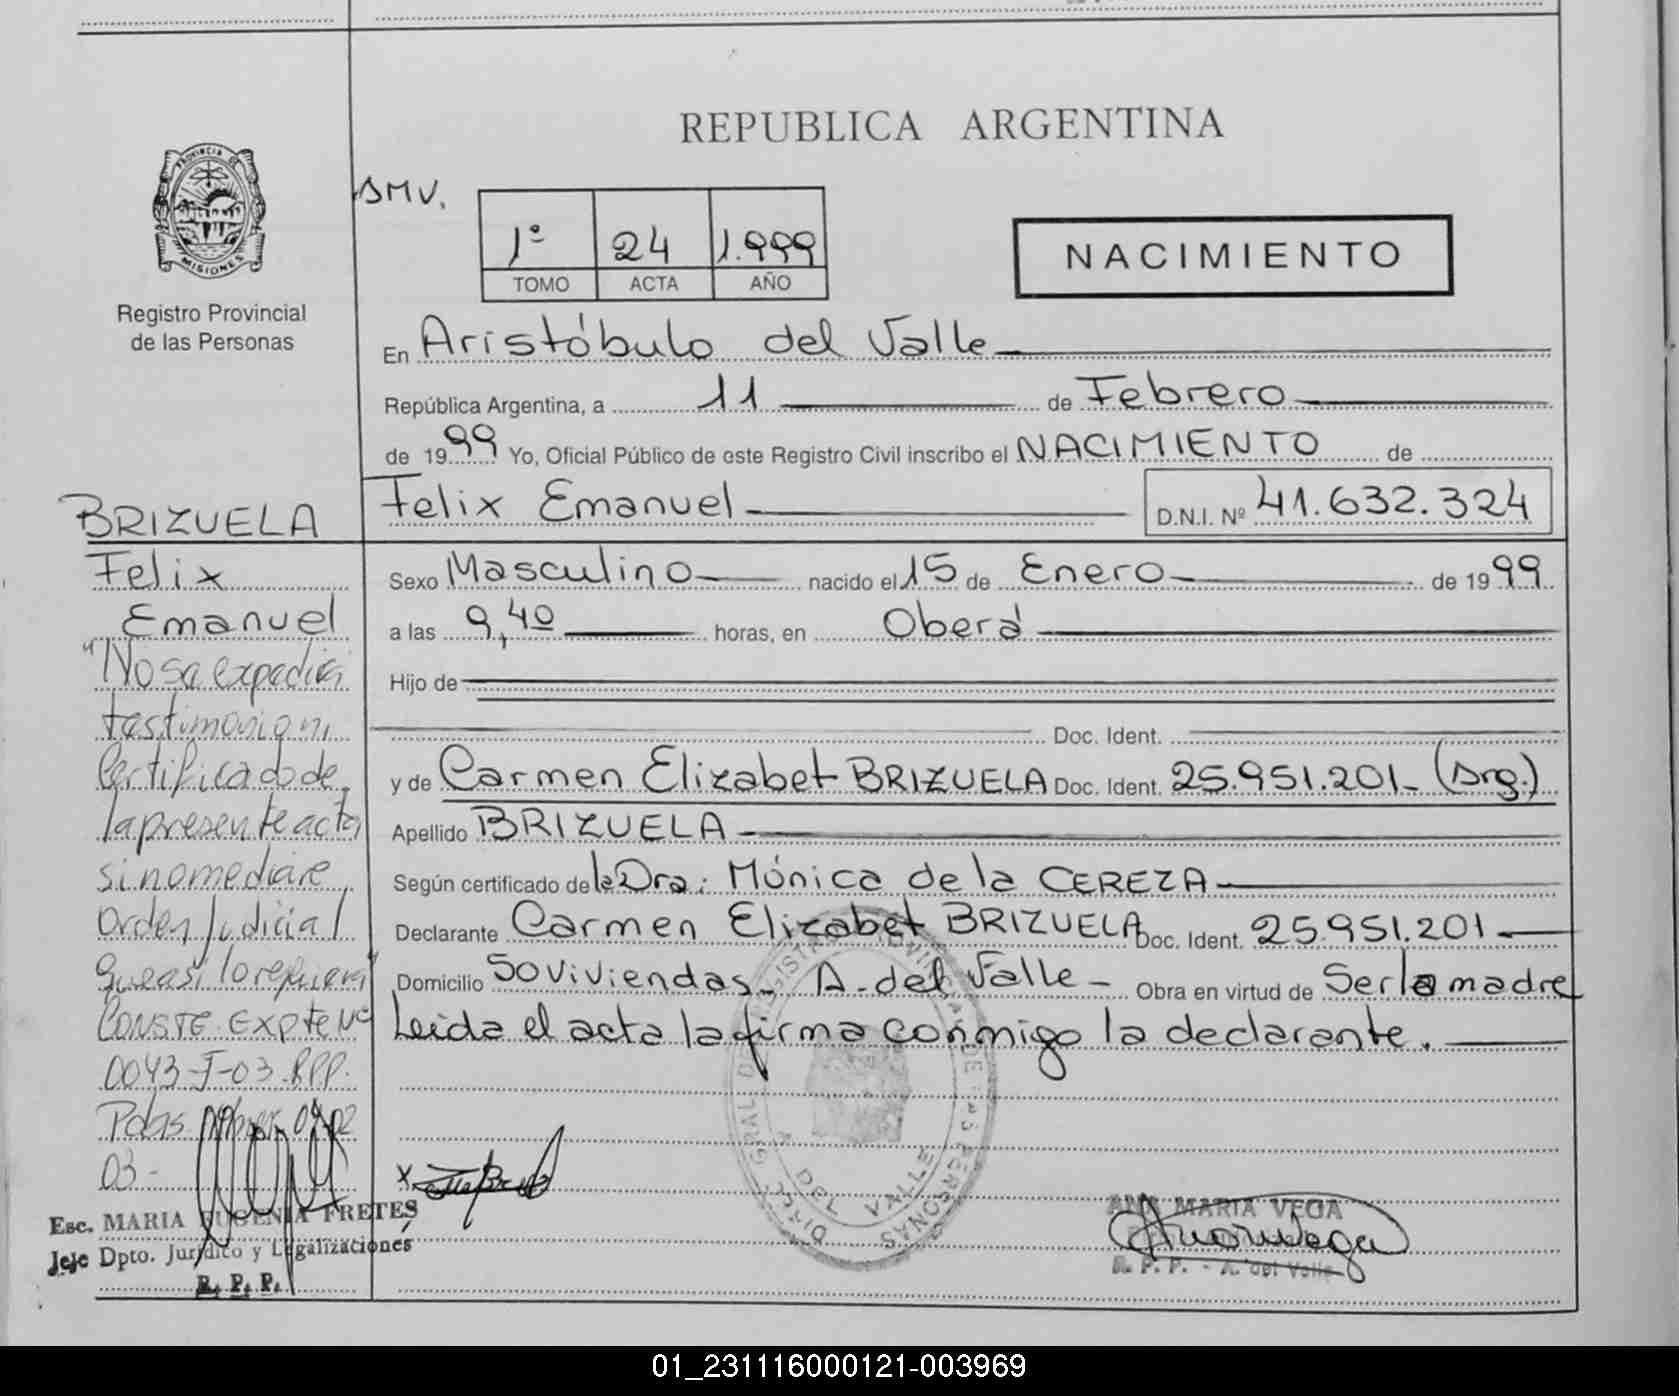 REPUBLICA ARGENTINA
PROVINCIA DE
MISIONES
Registro Provincial
de las Personas
SMV.
1º 24 1.999
TOMO ACTA AÑO
NACIMIENTO
En Aristóbulo del Valle
República Argentina, a 11 de Febrero
de 1999 Yo, Oficial Público de este Registro Civil inscribo el NACIMIENTO de
Felix Emanuel D.N.I. Nº 41.632.324
Sexo Masculino nacido el 15 de Enero de 1999
a las 9,40 horas, en Oberá
Hijo de
Doc. Ident.
y de Carmen Elizabet BRIZUELA Doc. Ident. 25.951.201_ (Arg.)
Apellido BRIZUELA
Según certificado de la Dra: Mónica de la CEREZA
Declarante Carmen Elizabet BRIZUELA Doc. Ident. 25.951.201
Domicilio 50 viviendas_ A. del Valle - Obra en virtud de Ser la madre
Leida el acta la firma conmigo la declarante.
BRIZUELA
Felix
Emanuel
"No se expedira
testimonio ni
Certificado de
la presente acta
si no mediare
Orden Judicial
que asi lo requiera"
CONSTE. EXPTE Nº
0043-J-03-RPP.
Pdas 02
03-
Esc. MARIA EUGENIA FRETES
Jefe Dpto. Jurídico y Legalizaciones
R. P. P.
X
DIREC. GRAL. DE REGISTRO PROVINCIAL DE LAS PERSONAS
A. DEL VALLE
ANA MARIA VEGA
R. P. P. - A. del Valle
01_231116000121-003969